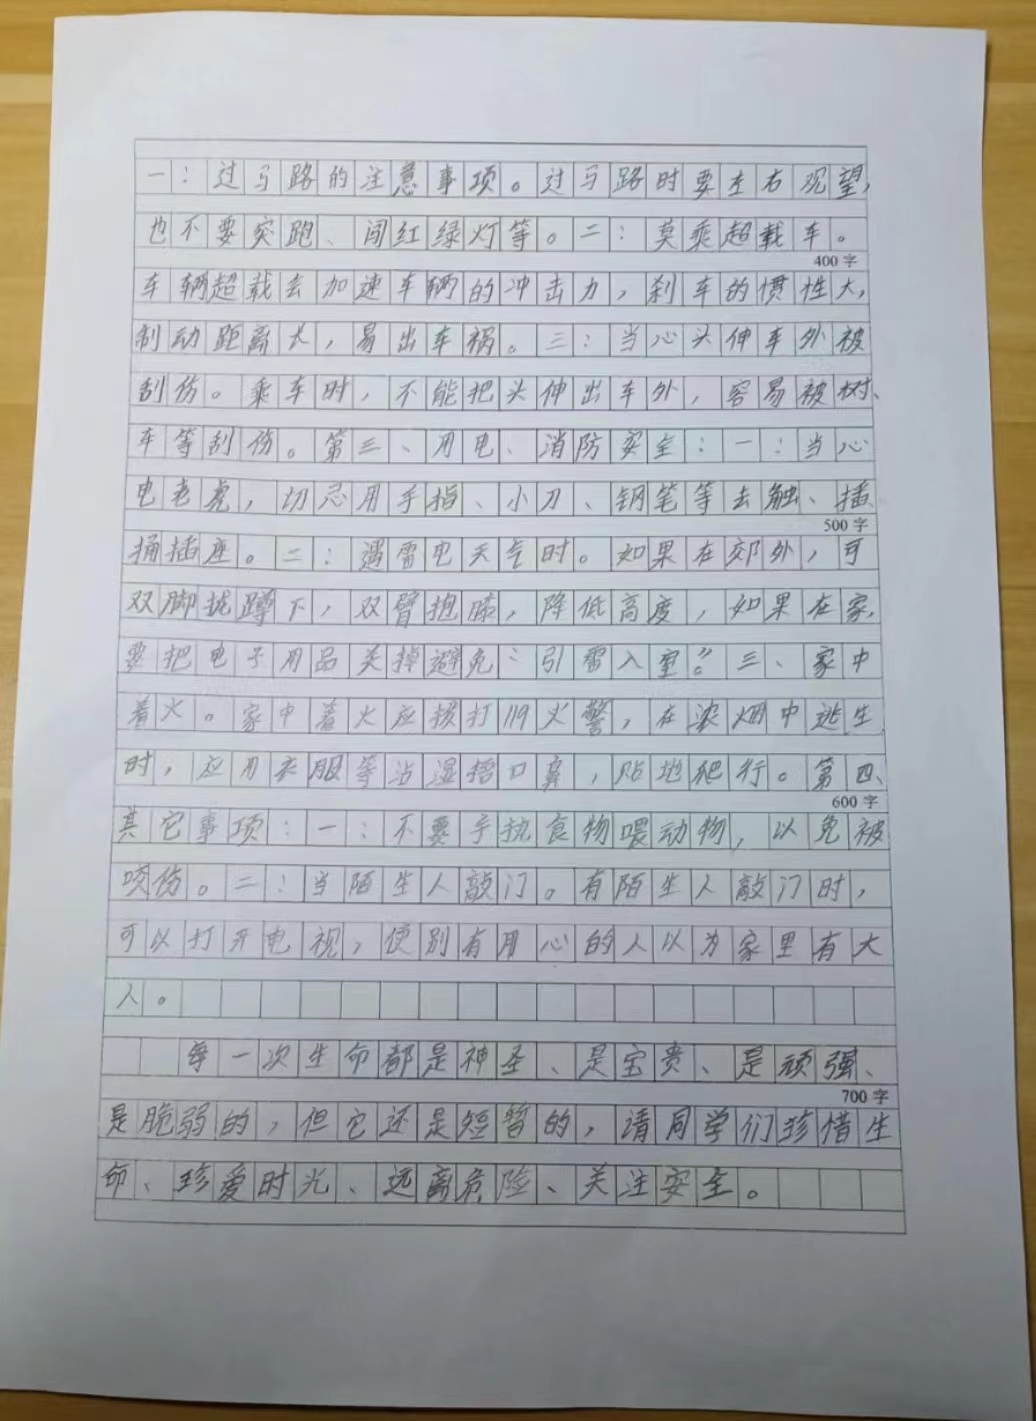 一：过马路的注意事项。过马路时要左右观望,
也不要突跑、闯红绿灯等。二：莫乘超载车。
400字
车辆超载会加速车辆的冲击力，刹车的惯性大,
制动距离大，易出车祸。三：当心头伸车外被
刮伤。乘车时，不能把头伸出车外，容易被树、
车等刮伤。第三、用电、消防安全：一：当心
电老虎，切忌用手指、小刀、钢笔等去触、插、
捅插座。二：遇雷电天气时。如果在郊外，可
500字
双脚拢蹲下，双臂抱膝，降低高度，如果在家,
要把电子用品关掉避免“引雷入室”。三、家中
着火。家中着火应拨打119火警，在浓烟中逃生
时，应用衣服等沾湿捂口鼻，贴地爬行。第四、
600字
其它事项：一：不要手执食物喂动物，以免被
咬伤。二：当陌生人敲门。有陌生人敲门时，
可以打开电视，使别有用心的人以为家里有大
人。
每一次生命都是神圣、是宝贵、是顽强、
700字
是脆弱的，但它还是短暂的，请同学们珍惜生
命、珍爱时光、远离危险、关注安全。